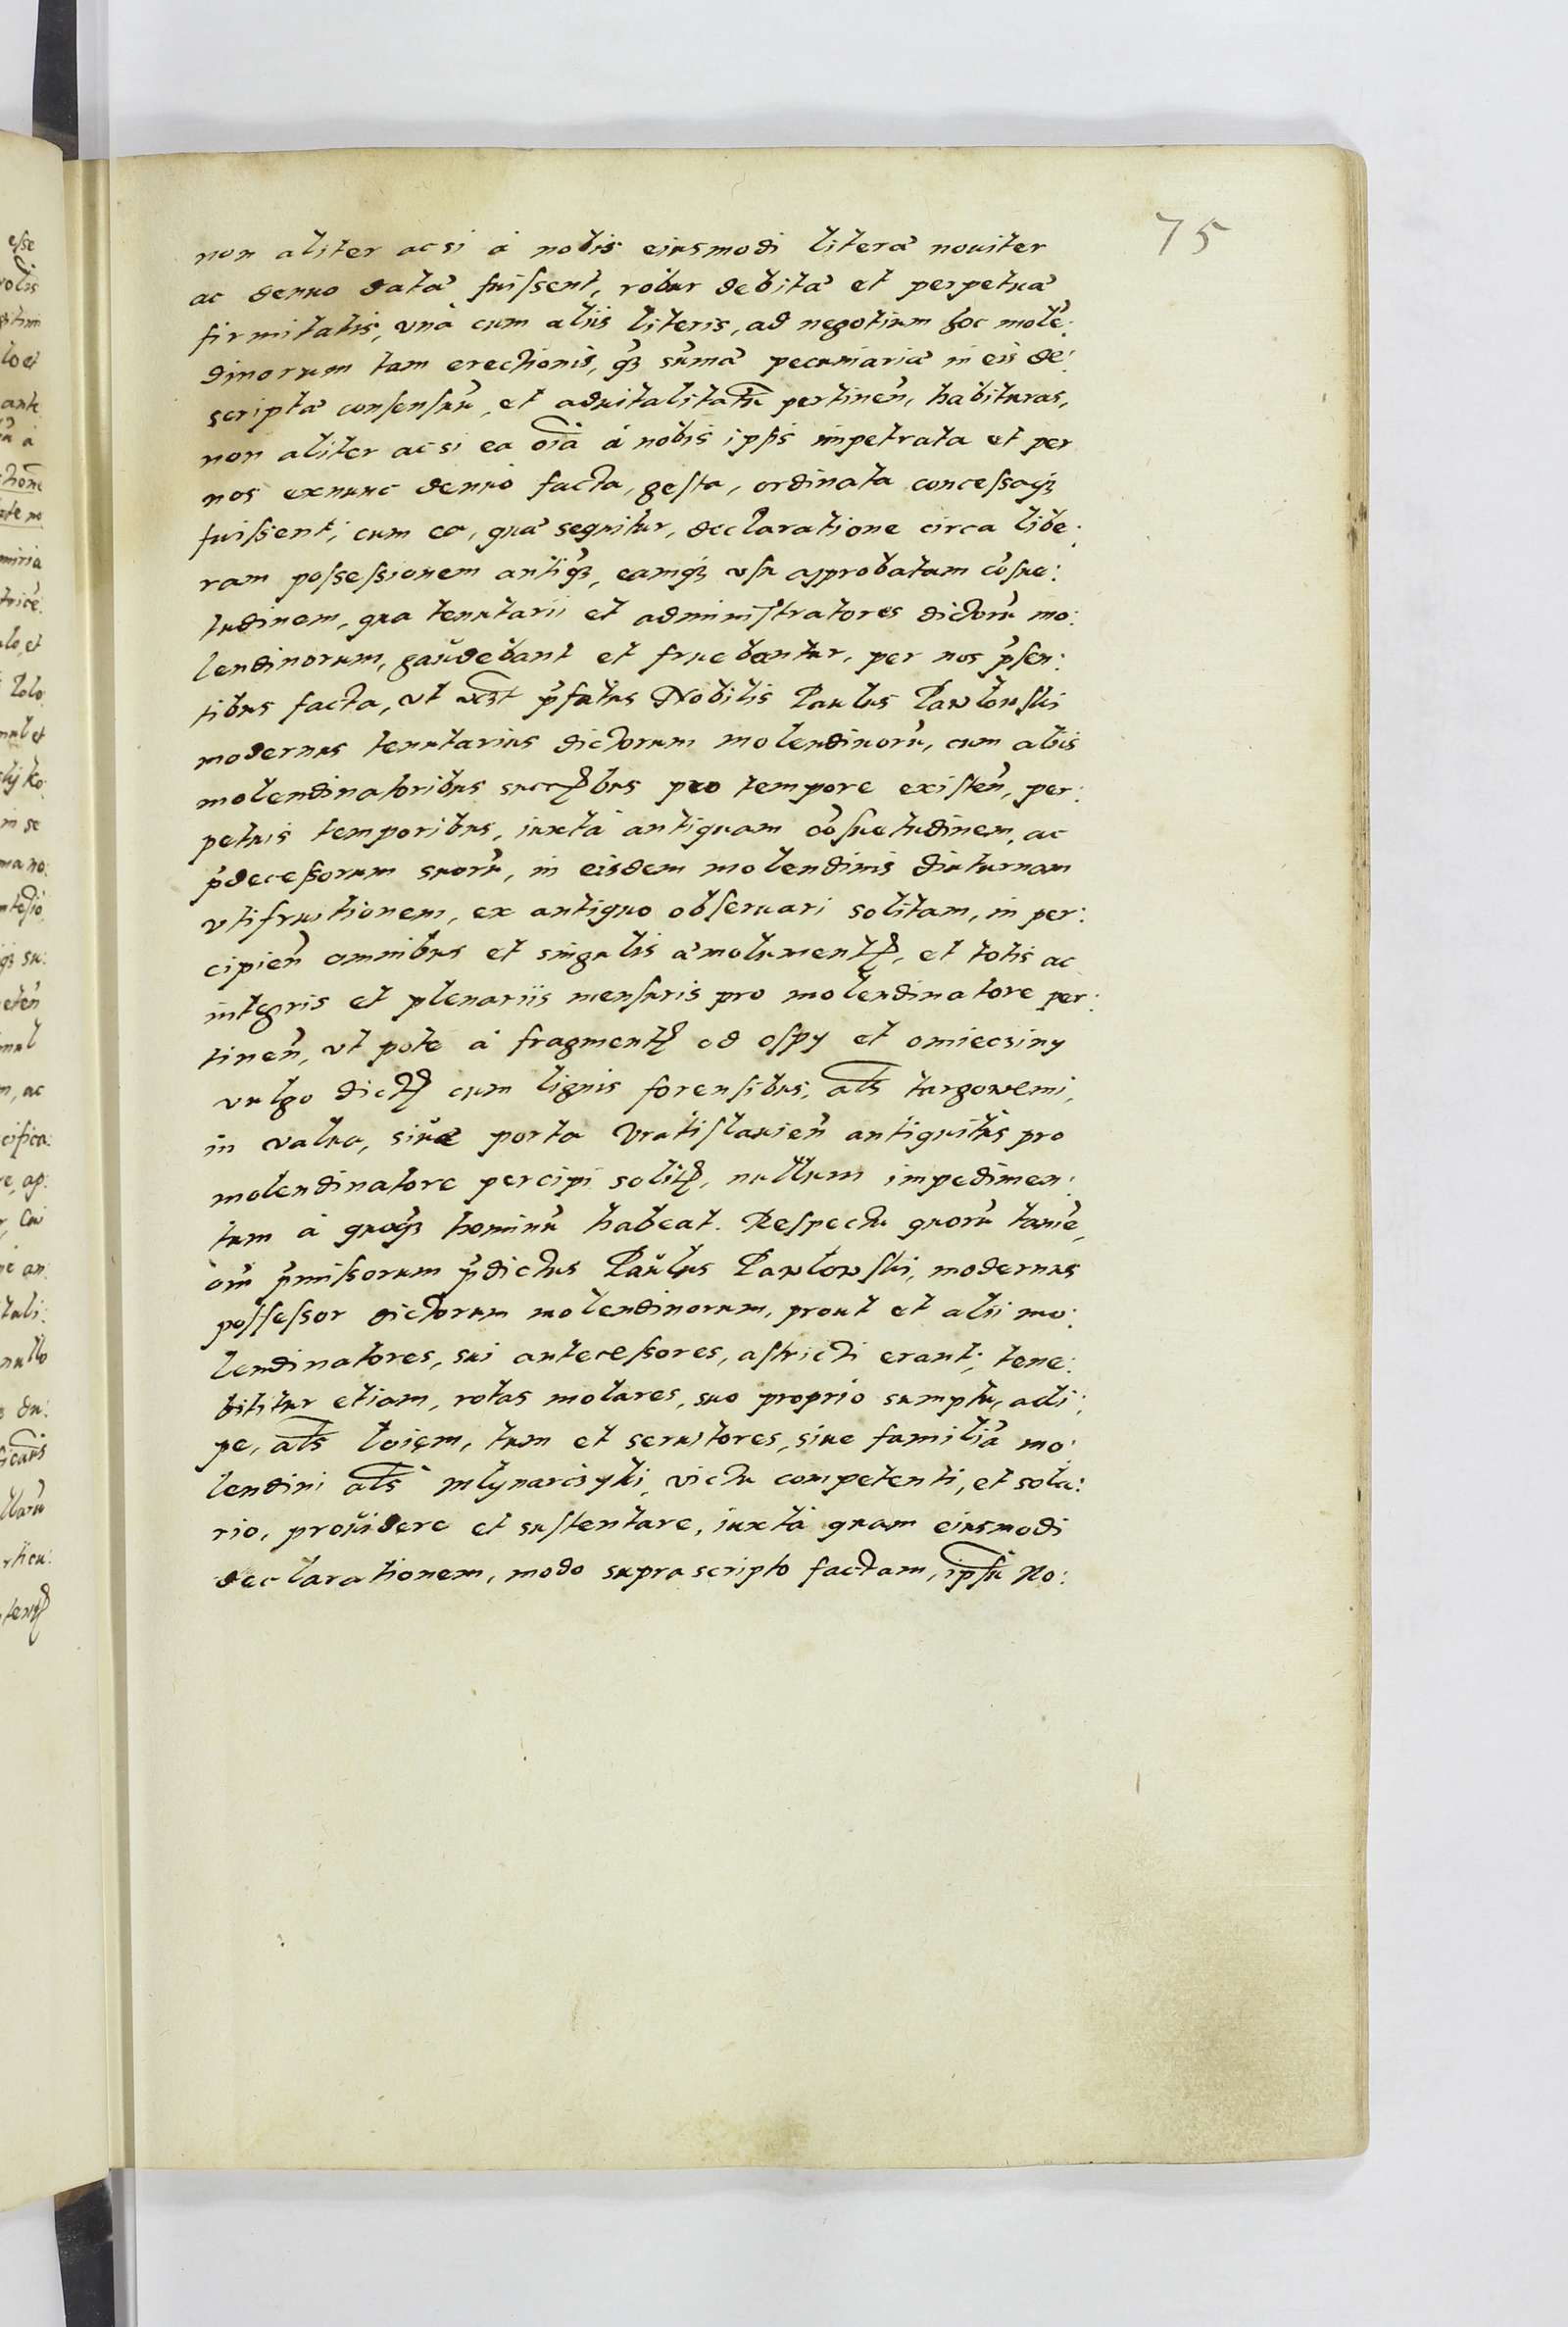 75
non aliter acsi á nobis eiusmodi literæ nouiter
ac denuo datæ fuissent, robur debitæ et perpetuæ
firmitatis, vná cum aliis literis, ad negotium hoc molẽ:
dinorum tam erectionis, q̃ꝫ sũmæ pecuniariæ in eis de:
scriptæ consensuũ, et aduitalitatũ pertineñ, habituras,
non aliter acsi ea oĩa á nobis ipsis impetrata et per
nos exnunc denuò facta, gesta, ordinata concessaqꝫ
fuissent; cum ea, quæ sequitur, declaratione circa libe:
ram possessionem antiq̃ꝫ, eamqꝫ vsu approbatam cõsue:
tudinem, qua tenutarii et administratores dictorũ mo:
lendinorum, gaudebant et fruebantur, per nos p̃sen:
tibus facta, vt p̃fatus Nobilis Paulus Pawłowski
modernus tenutarius dictorum molendinorũ, cum aliis
molendinatoribus succꝭbus pro tempore existeñ, per:
petuis temporibus, iuxta antiquam cõsuetudinem, ac
p̃decessorum suorũ, in eisdem molendinis diuturnam
vtifruitionem, ex antiquo obseruari solitam, in per:
cipieñ omnibus et singulis æmolumentꝭ, et totis ac
integris et plenariis mensuris pro molendinatore per:
tineñ, vt pote á fragmentꝭ od ospy et omiecziny
vulgo dictꝭ cum lignis forensibus, als targowemi,
in valua, siue porta Vratislauieñ antiquitùs pro
molendinatore percipi solitꝭ, nullum impedimen:
tum á quoqꝫ hominũ habeat. Respectu quorũ tamẽ,
oĩm p̃missorum p̃dictus Paulus Pawłowski, modernus
possessor dictorum molendinorum, prout et alii mo:
lendinatores, sui antecessores, astricti erant; tene:
bititur etiam, rotas molares, suo proprio sumptu, adi:
pe, als łoięm, tum et seruitores, siue familiã mo:
lendini als mlynarczyki, victu competenti, et sola:
rio, prouidere et sustentare, iuxta quam eiusmodi
declarationem, modo suprascripto factam, ipsũ No: